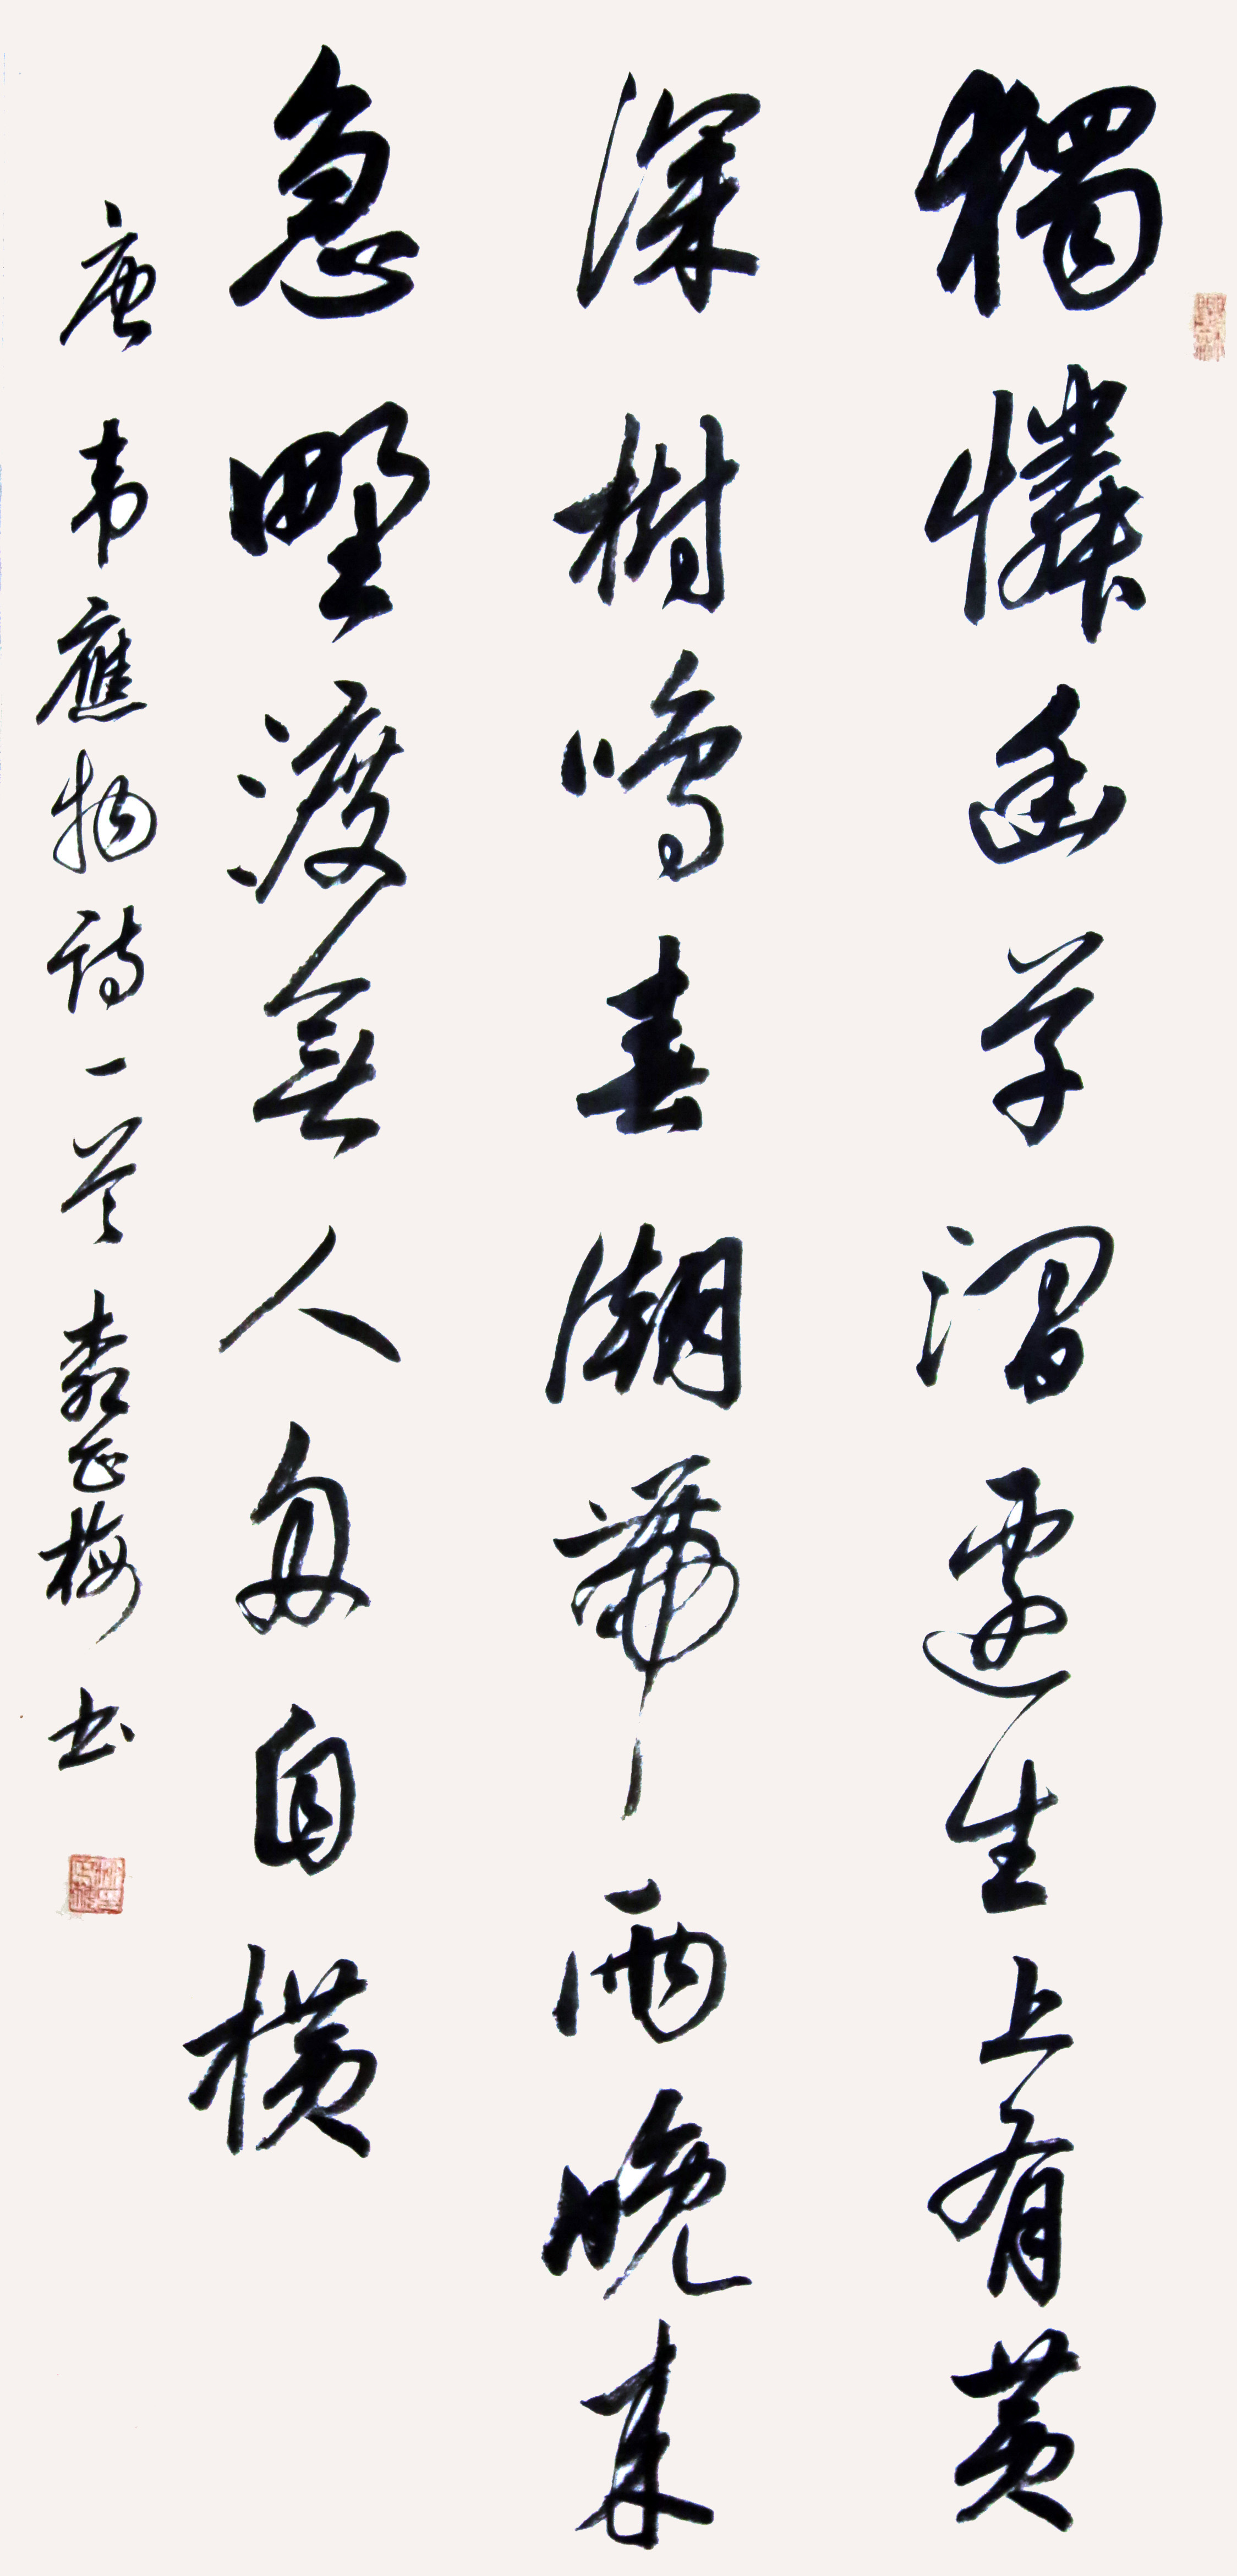 獨憐幽草澗邊生上有黃
深樹鳴春潮帶雨晚來
急野渡無人舟自橫
唐韋應物詩一首正梅書